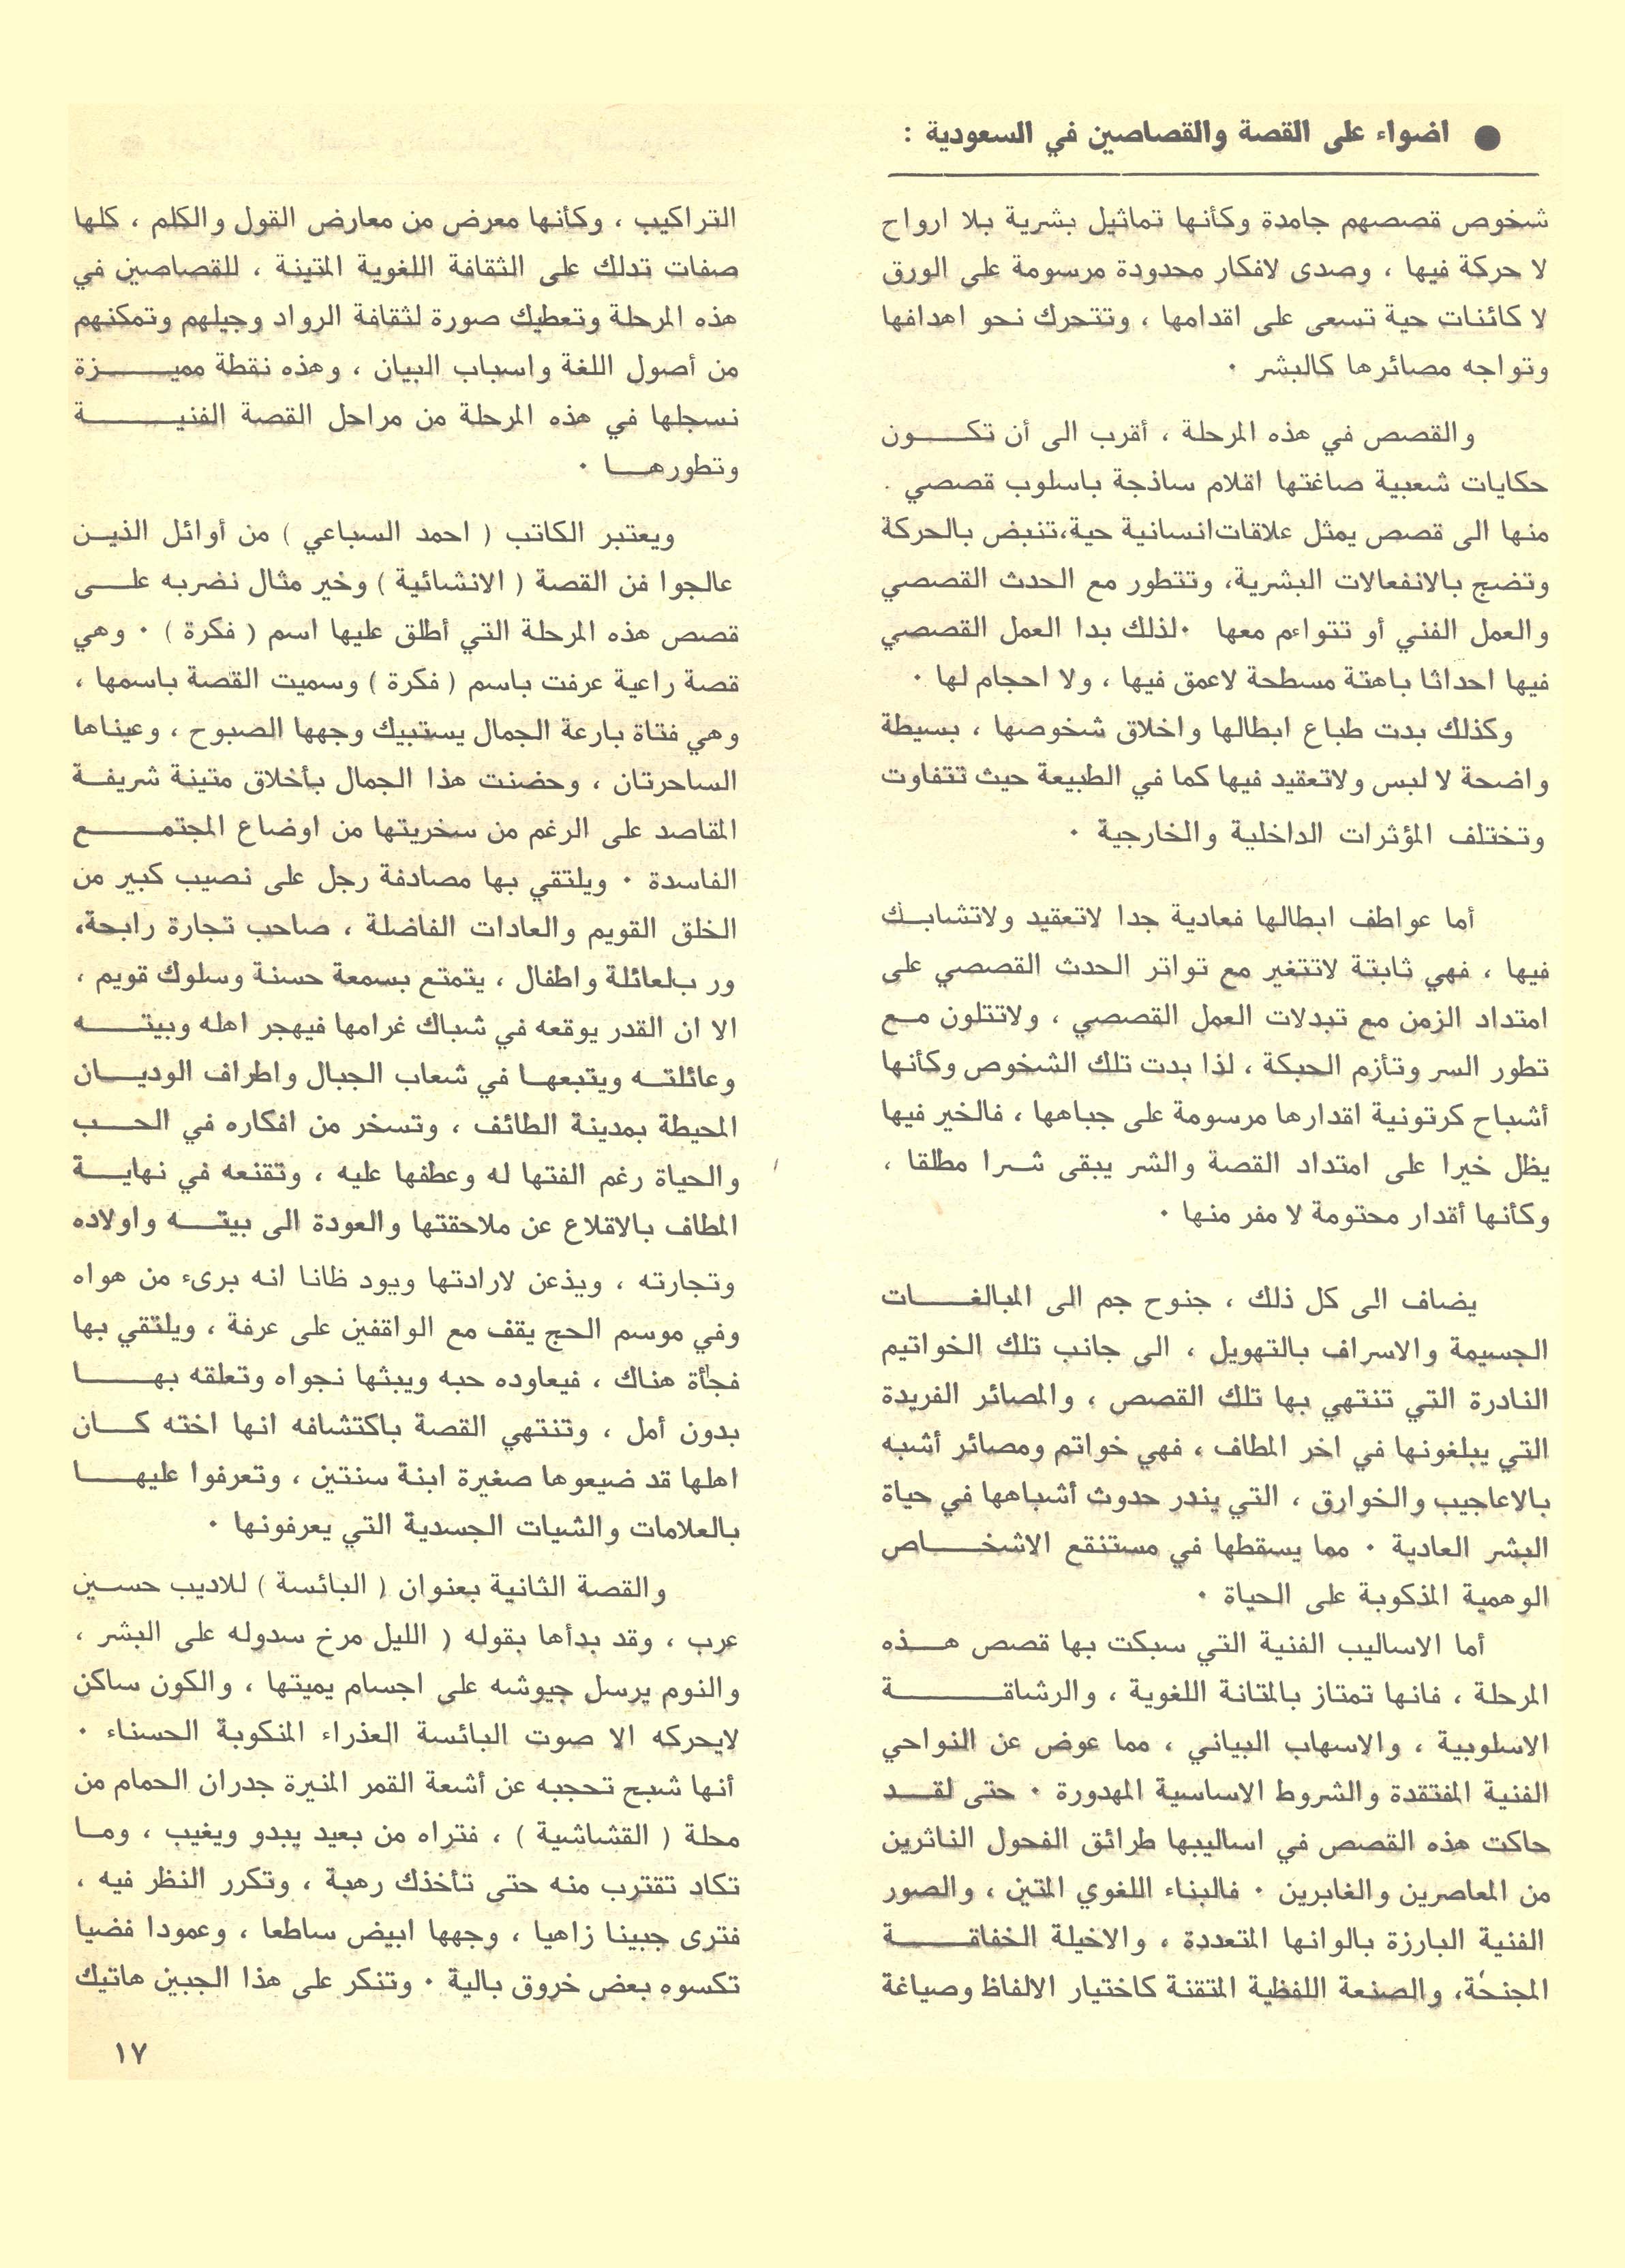 ● اضواء على القصة والقصاصين في السعودية :
شخوص قصصهم جامدة وكأنها تماثيل بشرية بلا ارواح
لا حركة فيها ، وصدى لافكار محدودة مرسومة على الورق
لا كائنات حية تسعى على اقدامها ، وتتحرك نحو اهدافها
وتواجه مصائرها كالبشر ٠
والقصص في هذه المرحلة ، أقرب الى أن تكون
حكايات شعبية صاغتها اقلام ساذجة باسلوب قصصي .
منها الى قصص يمثل علاقات انسانية حية، تنبض بالحركة
وتضج بالانفعالات البشرية، وتتطور مع الحدث القصصي
والعمل الفني أو تتواءم معها ٠ لذلك بدا العمل القصصي
فيها احداثا باهتة مسطحة لاعمق فيها ، ولا احجام لها ٠
وكذلك بدت طباع ابطالها واخلاق شخوصها ، بسيطة
واضحة لا لبس ولاتعقيد فيها كما في الطبيعة حيث تتفاوت
وتختلف المؤثرات الداخلية والخارجية ٠
أما عواطف ابطالها فعادية جدا لاتعقيد ولاتشابك
فيها ، فهي ثابتة لاتتغير مع تواتر الحدث القصصي على
امتداد الزمن مع تبدلات العمل القصصي ، ولاتتلون مع
تطور السر وتأزم الحبكة ، لذا بدت تلك الشخوص وكأنها
أشباح كرتونية اقدارها مرسومة على جباهها ، فالخير فيها
يظل خيرا على امتداد القصة والشر يبقى شرا مطلقا ،
وكأنها أقدار محتومة لا مفر منها ٠
يضاف الى كل ذلك ، جنوح جم الى المبالغات
الجسيمة والاسراف بالتهويل ، الى جانب تلك الخواتيم
النادرة التي تنتهي بها تلك القصص ، والمصائر الفريدة
التي يبلغونها في اخر المطاف ، فهي خواتم ومصائر أشبه
بالاعاجيب والخوارق ، التي يندر حدوث أشباهها في حياة
البشر العادية ٠ مما يسقطها في مستنقع الاشخاص
الوهمية المذكوبة على الحياة ٠
أما الاساليب الفنية التي سبكت بها قصص هذه
المرحلة ، فانها تمتاز بالمتانة اللغوية ، والرشاقة
الاسلوبية ، والاسهاب البياني ، مما عوض عن النواحي
الفنية المفتقدة والشروط الاساسية المهدورة ٠ حتى لقد
حاكت هذه القصص في اساليبها طرائق الفحول الناثرين
من المعاصرين والغابرين ٠ فالبناء اللغوي المتين ، والصور
الفنية البارزة بالوانها المتعددة ، والاخيلة الخفاقة
المجنحة، والصنعة اللفظية المتقنة كاختيار الالفاظ وصياغة
التراكيب ، وكأنها معرض من معارض القول والكلم ، كلها
صفات تدلك على الثقافة اللغوية المتينة ، للقصاصين في
هذه المرحلة وتعطيك صورة لثقافة الرواد وجيلهم وتمكنهم
من أصول اللغة واسباب البيان ، وهذه نقطة مميزة
نسجلها في هذه المرحلة من مراحل القصة الفنية
وتطورها ٠
ويعتبر الكاتب ( احمد السباعي ) من أوائل الذين
عالجوا فن القصة ( الانشائية ) وخير مثال نضربه على
قصص هذه المرحلة التي أطلق عليها اسم ( فكرة ) ٠ وهي
قصة راعية عرفت باسم ( فكرة ) وسميت القصة باسمها ،
وهي فتاة بارعة الجمال يستبيك وجهها الصبوح ، وعيناها
الساحرتان ، وحضنت هذا الجمال بأخلاق متينة شريفة
المقاصد على الرغم من سخريتها من اوضاع المجتمع
الفاسدة ٠ ويلتقي بها مصادفة رجل على نصيب كبير من
الخلق القويم والعادات الفاضلة ، صاحب تجارة رابحة،
ور ب لعائلة واطفال ، يتمتع بسمعة حسنة وسلوك قويم ،
الا ان القدر يوقعه في شباك غرامها فيهجر اهله وبيته
وعائلته ويتبعها في شعاب الجبال واطراف الوديان
المحيطة بمدينة الطائف ، وتسخر من افكاره في الحب
والحياة رغم الفتها له وعطفها عليه ، وتقنعه في نهاية
المطاف بالاقلاع عن ملاحقتها والعودة الى بيته واولاده
وتجارته ، ويذعن لارادتها ويود ظانا انه برىء من هواه
وفي موسم الحج يقف مع الواقفين على عرفة ، ويلتقي بها
فجأة هناك ، فيعاوده حبه ويبثها نجواه وتعلقه بها
بدون أمل ، وتنتهي القصة باكتشافه انها اخته كان
اهلها قد ضيعوها صغيرة ابنة سنتين ، وتعرفوا عليها
بالعلامات والشيات الجسدية التي يعرفونها ٠
والقصة الثانية بعنوان ( البائسة ) للاديب حسين
عرب ، وقد بدأها بقوله ( الليل مرخ سدوله على البشر ،
والنوم يرسل جيوشه على اجسام يميتها ، والكون ساكن
لايحركه الا صوت البائسة العذراء المنكوبة الحسناء ٠
أنها شبح تحجبه عن أشعة القمر المنيرة جدران الحمام من
محلة ( القشاشية ) ، فتراه من بعيد يبدو ويغيب ، وما
تكاد تقترب منه حتى تأخذك رهبة ، وتكرر النظر فيه ،
فترى جبينا زاهيا ، وجهها ابيض ساطعا ، وعمودا فضيا
تكسوه بعض خروق بالية ٠ وتنكر على هذا الجبين هاتيك
١٧